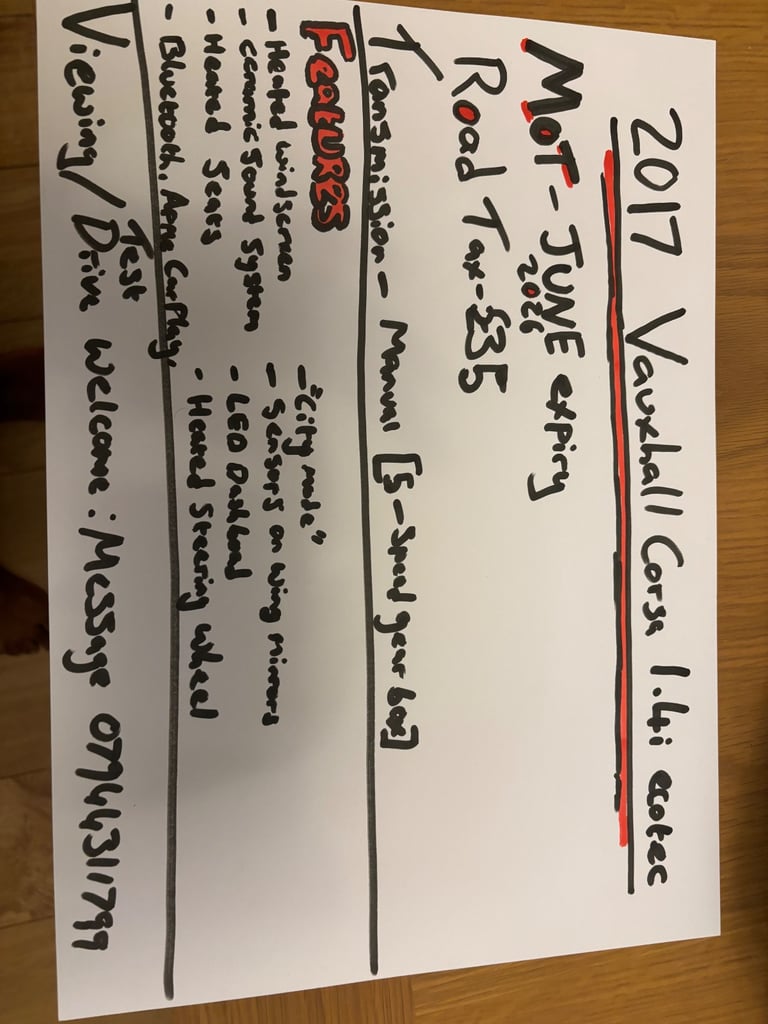 2017 Vauxhall Corsa 1.4i ecotec
MOT - JUNE expiry
2026
Road Tax - £35
Transmission - Manual [5-speed gear box]
FEATURES
- Heated windscreen
- ceramic sound system
- Heated Seats
- Bluetooth, Apple CarPlay
- "City mode"
- Sensors on wing mirrors
- LED Dashboard
- Heated Steering Wheel
Viewing/Test Drive welcome: Message 07944311799